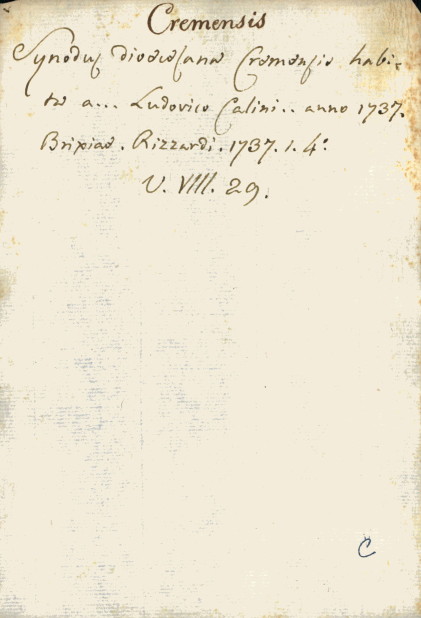 Cremensis
Synodus dioecesana Cremensis habi-
ta a... Ludovico Calini.. anno 1737.
Brixiae. Rizzardi. 1737. 1. 4°
V. VIII. 29.
C